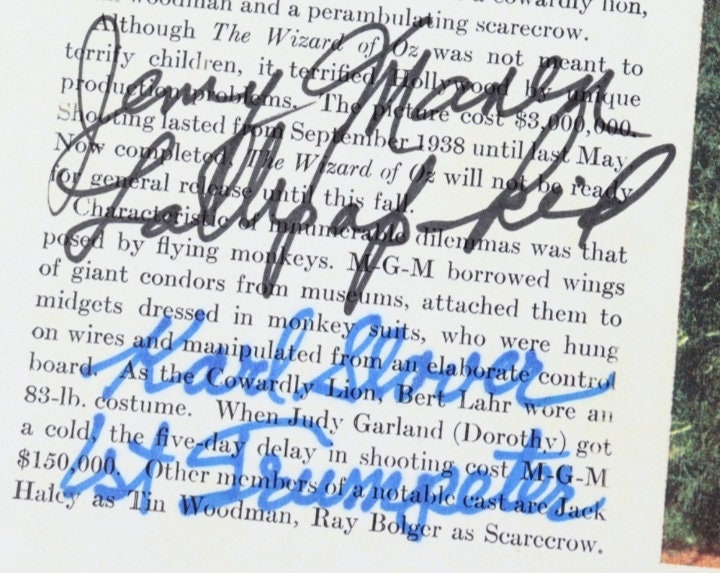 woodman and a perambulating scarecrow.
Although The Wizard of Oz was not meant to
terrify children, it terrified Hollywood by unique
production problems. The picture cost $3,000,000.
Shooting lasted from September 1938 until last May.
Now completed, The Wizard of Oz will not be ready
for general release until this fall.
Characteristic of innumerable dilemmas was that
posed by flying monkeys. M-G-M borrowed wings
of giant condors from museums, attached them to
midgets dressed in monkey suits, who were hung
on wires and manipulated from an elaborate control
board. As the Cowardly Lion, Bert Lahr wore an
83-lb. costume. When Judy Garland (Dorothy) got
a cold, the five-day delay in shooting cost M-G-M
$150,000. Other members of a notable cast are Jack
Haley as Tin Woodman, Ray Bolger as Scarecrow.
Jerry Maren
Lollipop Kid
Karl Slover
1st Trumpeter